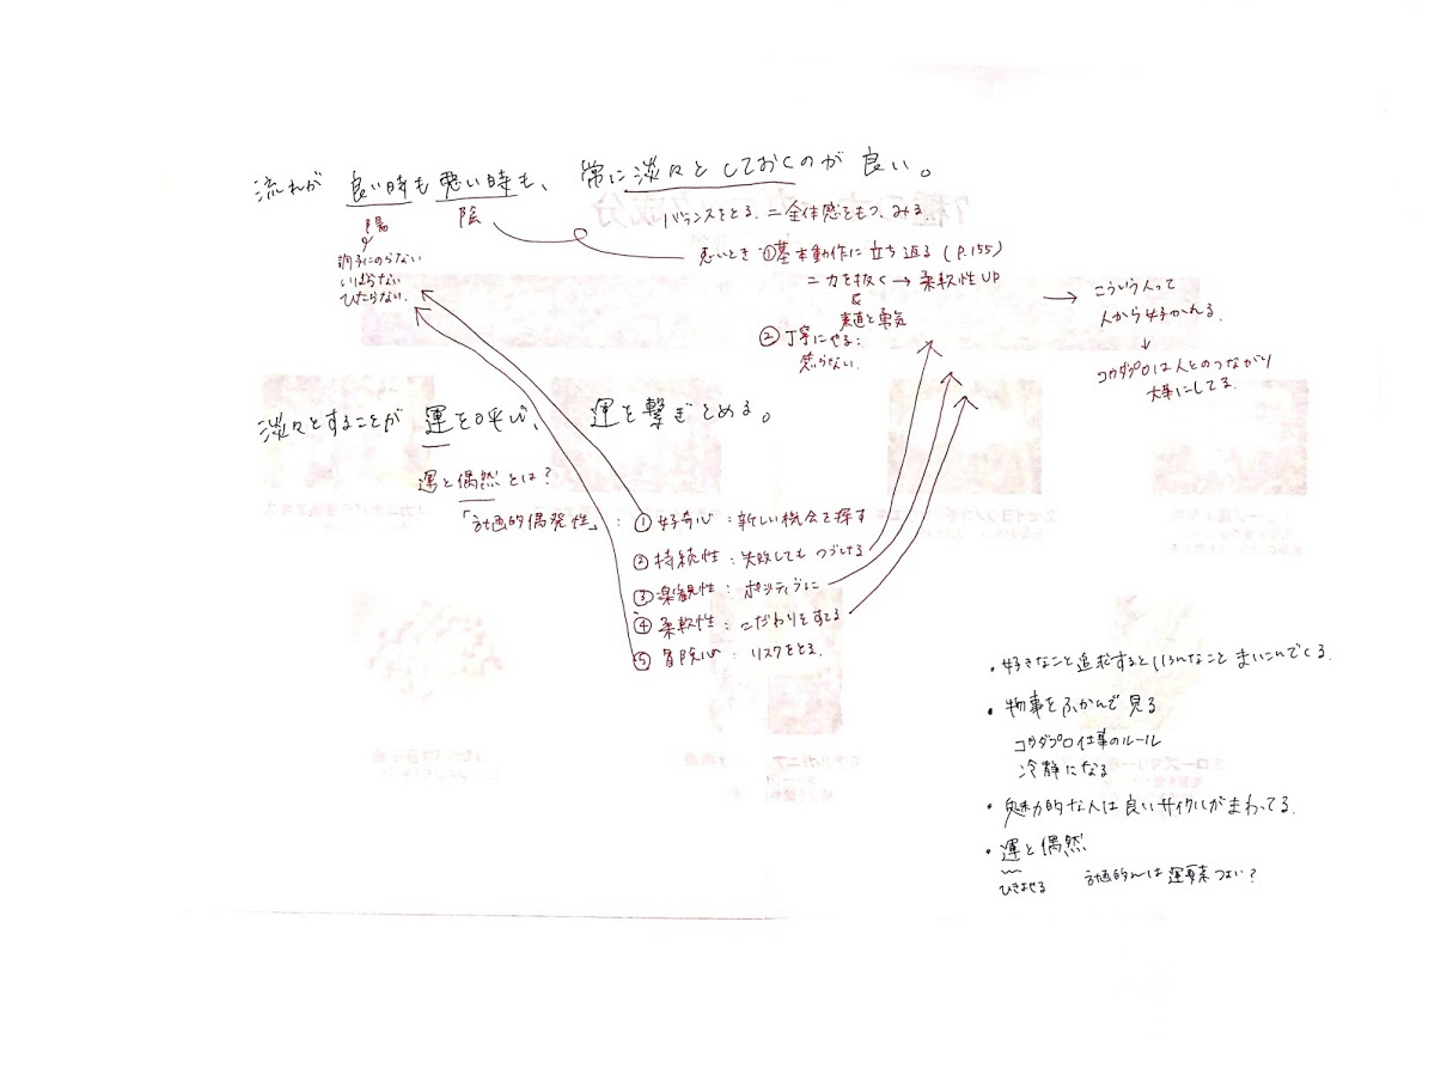 流れが 良い時も悪い時も、常に淡々としておくのが良い。
陽
陰
バランスをとる。＝全体感をもつ、みる。
調子にのらない
いばらない
ひたらない。
悪いとき ①基本動作に立ち返る (P.155)
＝力を抜く→柔軟性UP
&
素直と勇気
②丁寧にやる：
焦らない。
→ こういう人って
人から好かれる。
↓
コウダプロは人とのつながり
大事にしてる。
淡々とすることが 運を呼び、運を繋ぎとめる。
運と偶然とは？
「計画的偶発性」：①好奇心：新しい機会を探す
②持続性：失敗しても つづける
③楽観性：ポジティブに
④柔軟性：こだわりをすてる
⑤冒険心：リスクをとる。
・好きなこと追求するといろんなこと まいこんでくる。
・物事をふかんで見る
コウダプロ仕事のルール
冷静になる
・魅力的な人は良いサイクルがまわってる。
・運と偶然
ひきよせる 計画的〜は運要素つよい？